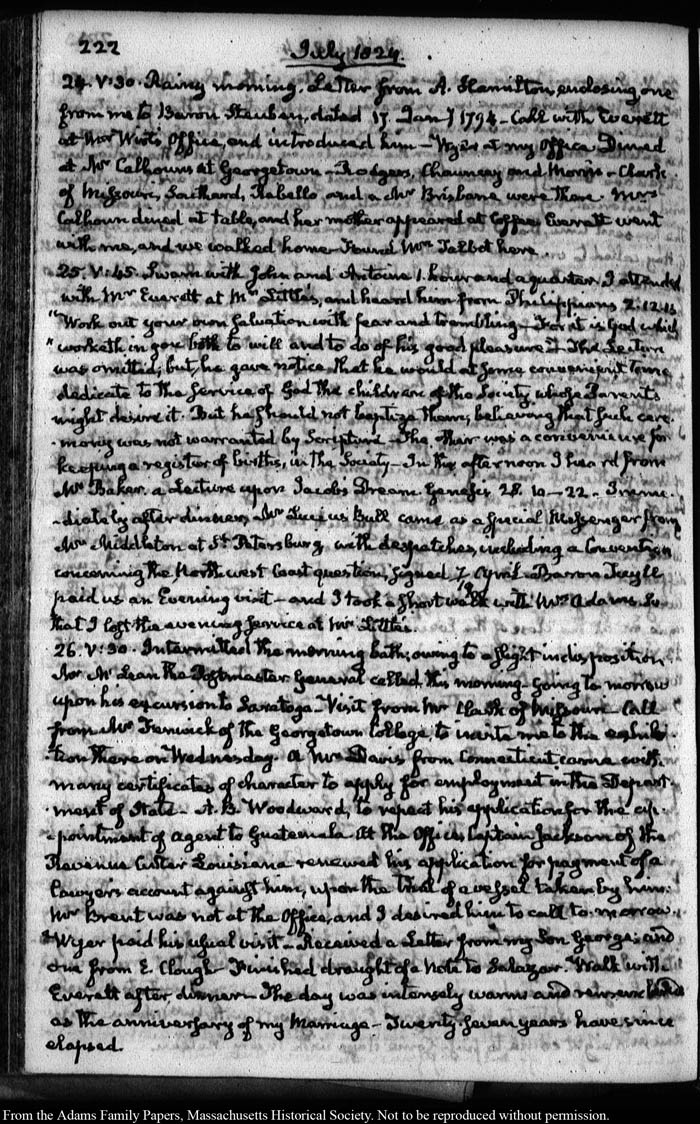 222
July 1824.
24. V:30. Rainy morning. Letter from A. Hamilton, enclosing one
from me to Baron Steuben, dated 17. Jany 1794 - Call with Everett
at Mr Wirt's Office, and introduced him - Wyer at my Office. Dined
at Mr Calhoun's at Georgetown - Rodgers, Chauncey and Morris - Clark
of Missouri, Southard, Rabello and a Mr Brisbane were there. Mrs
Calhoun dined at table, and her mother appeared at Coffee. Everett went
with me, and we walked home - Found Mrs Talbot here.
25. V:45. Swam with John and Antoine 1. hour and a quarter. I attended
with Mr Everett at Mr Little's, and heard him from Philippians 2. 12. 13
"Work out your own Salvation with fear and trembling - For it is God which
"worketh in you both to will and to do of his good pleasure" - The Lecture
was omitted; but, he gave notice that he would at some convenient time
dedicate to the Service of God the children of the Society, whose Parents
might desire it. But he should not baptize them; believing that such cere-
-mony was not warranted by Scripture - The other was a convenience for
keeping a register of births, in the Society - In the afternoon I heard from
Mr Baker, a Lecture upon Jacob's Dream Genesis 28. 10-22 - Imme-
-diately after dinner, Mr Lucius Bull came as a special Messenger from
Mr Middleton at St Petersburg with despatches, including a Convention
concerning the North west Coast question, signed April - Baron Tuyll
paid us an Evening visit - and I took a short walk with Mrs Adams. So
that I lost the evening service at Mr Little's.
26. V:30. Intermitted the morning bath; owing to a slight indisposition.
Mr McLean the Postmaster General called this morning - going to morrow
upon his excursion to Saratoga - Visit from Mr Clark of Missouri - Call
from Mr Fenwick of the Georgetown College, to invite me to the exhibi-
-tion there on Wednesday. A Mr Davis from Connecticut, came with
many certificates of character to apply for employment in the Depart-
-ment of State - A. B. Woodward, to repeat his application for the ap-
-pointment of agent to Guatemala. At the Office, Captain Jackson of the
Revenue Cutter Louisiana renewed his application for payment of a
Lawyer's account against him, upon the trial of a vessel taken by him.
Mr Brent was not at the Office, and I desired him to call to-morrow.
Wyer paid his usual visit - Received a Letter from my Son George; and
one from E. Clough - Finished draught of a Note to Salazar. Walk with
Everett after dinner - The day was intensely warm and
as the anniversary of my Marriage - Twenty seven years have since
elapsed.
From the Adams Family Papers, Massachusetts Historical Society. Not to be reproduced without permission.